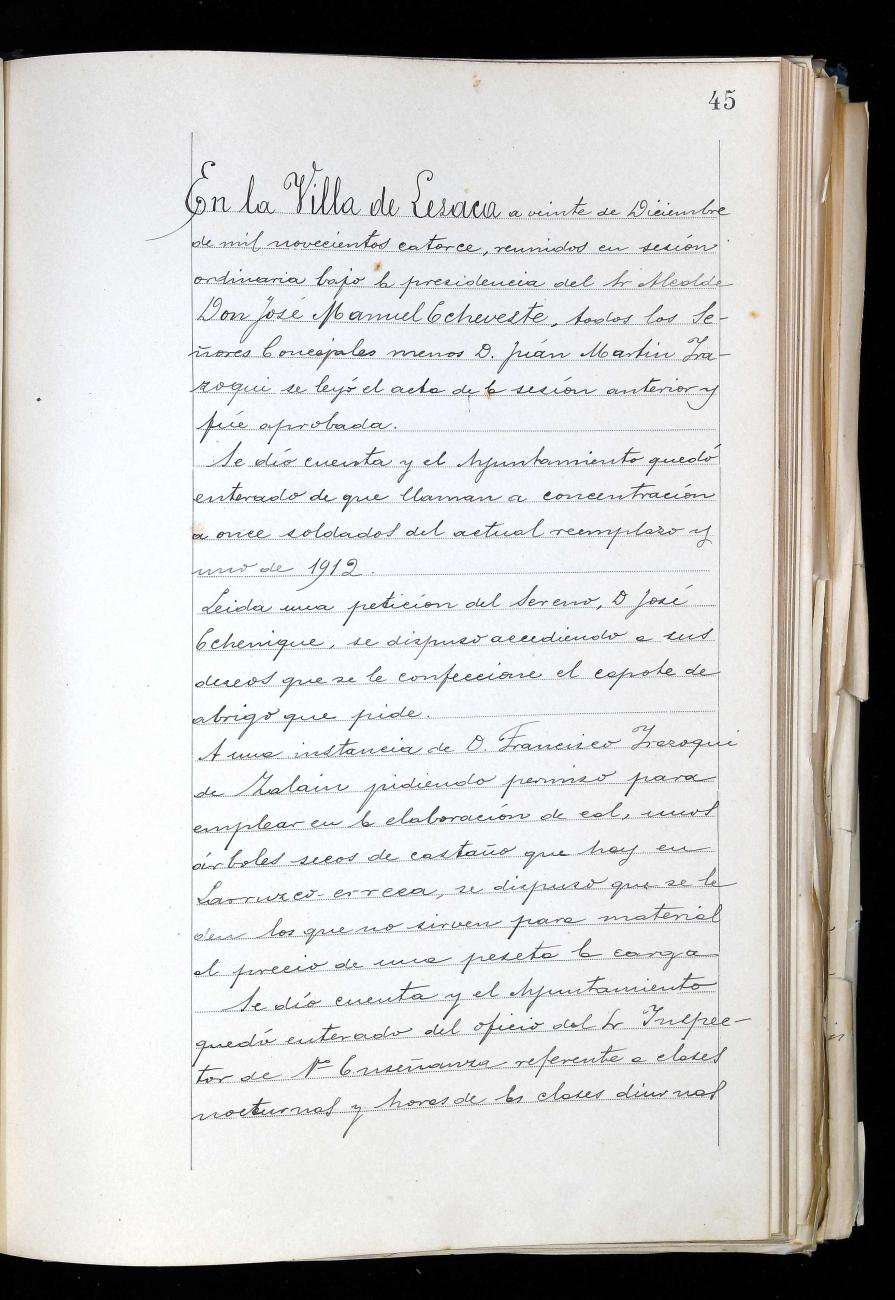 45
En la Villa de Lesaca a veinte de Diciembre
de mil novecientos catorce, reunidos en sesión
ordinaria bajo la presidencia del Sr Alcalde
Don José Manuel Echeveste, todos los Se-
ñores Concejales menos D. Juán Martin Ira-
zoqui se leyó el acta de la sesión anterior y
fué aprobada.
Se dío cuenta y el Ayuntamiento quedó
enterado de que llaman a concentración
a once soldados del actual reemplazo y
uno de 1912.
Leida una petición del Sereno, D José
Echenique, se dispuso accediendo a sus
deseos que se le confeccione el capote de
abrigo que pide.
A una instancia de D. Francisco Irazoqui
de Zalain pidiendo permiso para
emplear en la elaboración de cal, unos
árboles secos de castaño que hay en
Larruzco-erreca, se dispuso que se le
den los que no sirven para material
al precio de una peseta la carga
Se dío cuenta y el Ayuntamiento
quedó enterado del oficio del Sr Inspec-
tor de 1ª Enseñanza referente a clases
nocturnas y horas de las clases diurnas